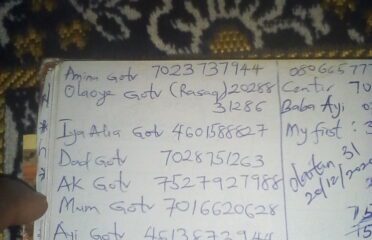 Amina Gotv 7023737944
Olaoye Gotv (Rasaq) 20288
31286
Iya Alia Gotv 4601588827
Dad Gotv 7028751263
AK Gotv 7527927988
Mum Gotv 7016620628
Aji Gotv 4613873944
080665777
Center 70
Baba Ayi 0
My first : 3
31
20/12/2020